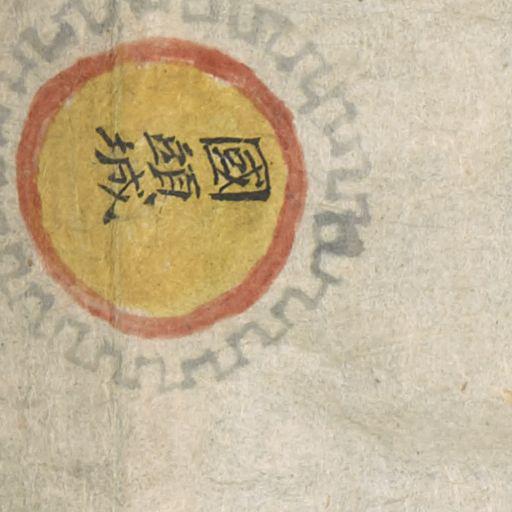 國頭城